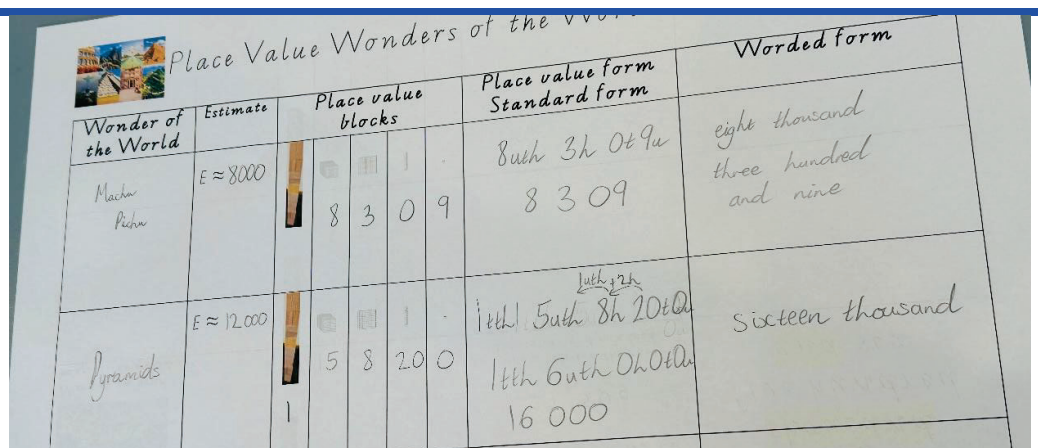 Place Value Wonders of the Wor
Wonder of
the World
Estimate
Place value
blocks
Place value form
Standard form
Worded form
Machu
Pichu
E ≈ 8000
8 3 0 9
8uth 3h 0t 9u
8 3 09
eight thousand
three hundred
and nine
Pyramids
E ≈ 12000
1 5 8 20 0
1uth +2h
1tth 5uth 8h 20t 0u
1tth 6uth 0h 0t 0u
16 000
sixteen thousand